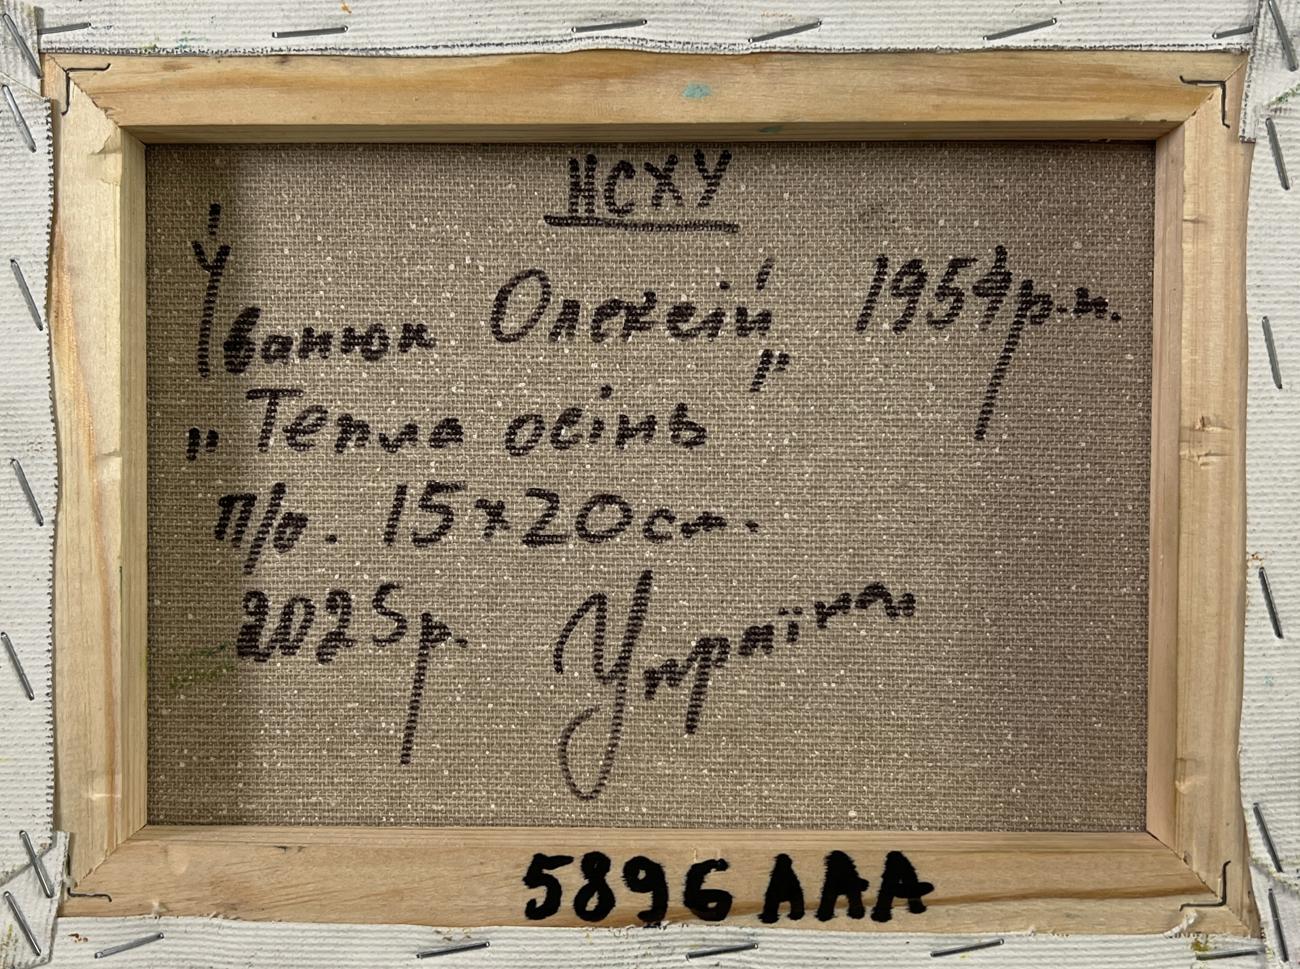 НСХУ
Іванюк Олексій 1954р.н.
„Тепла осінь"
п/о. 15x20см.
2025р. Україна
5896 AAA